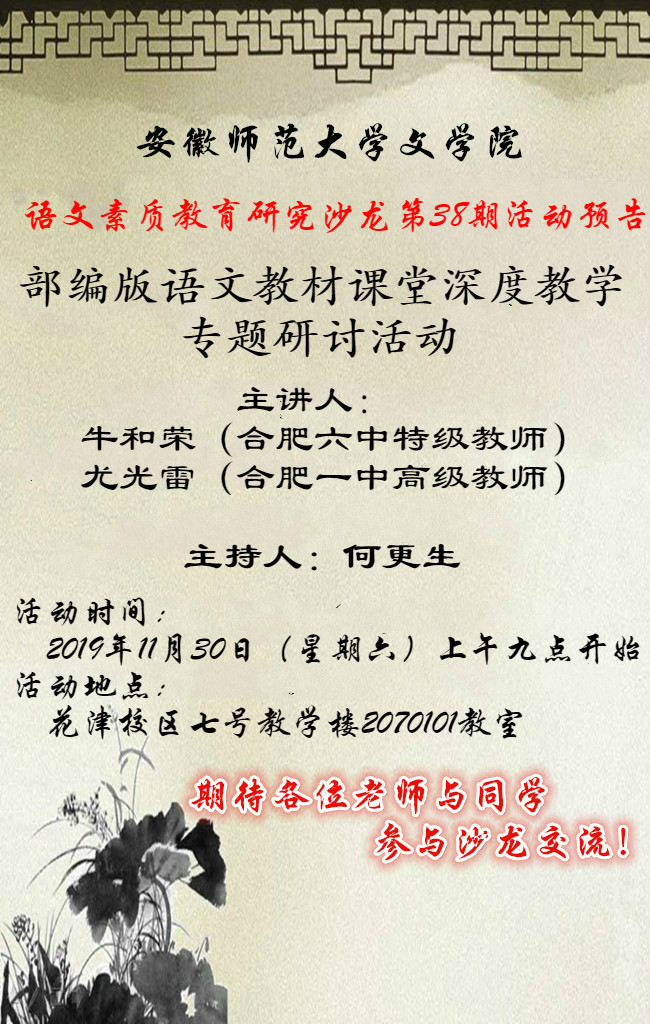 安徽师范大学文学院
语文素质教育研究沙龙第38期活动预告
部编版语文教材课堂深度教学
专题研讨活动
主讲人：
牛和荣（合肥六中特级教师）
尤光雷（合肥一中高级教师）
主持人：何更生
活动时间：
2019年11月30日（星期六）上午九点开始
活动地点：
花津校区七号教学楼2070101教室
期待各位老师与同学
参与沙龙交流！